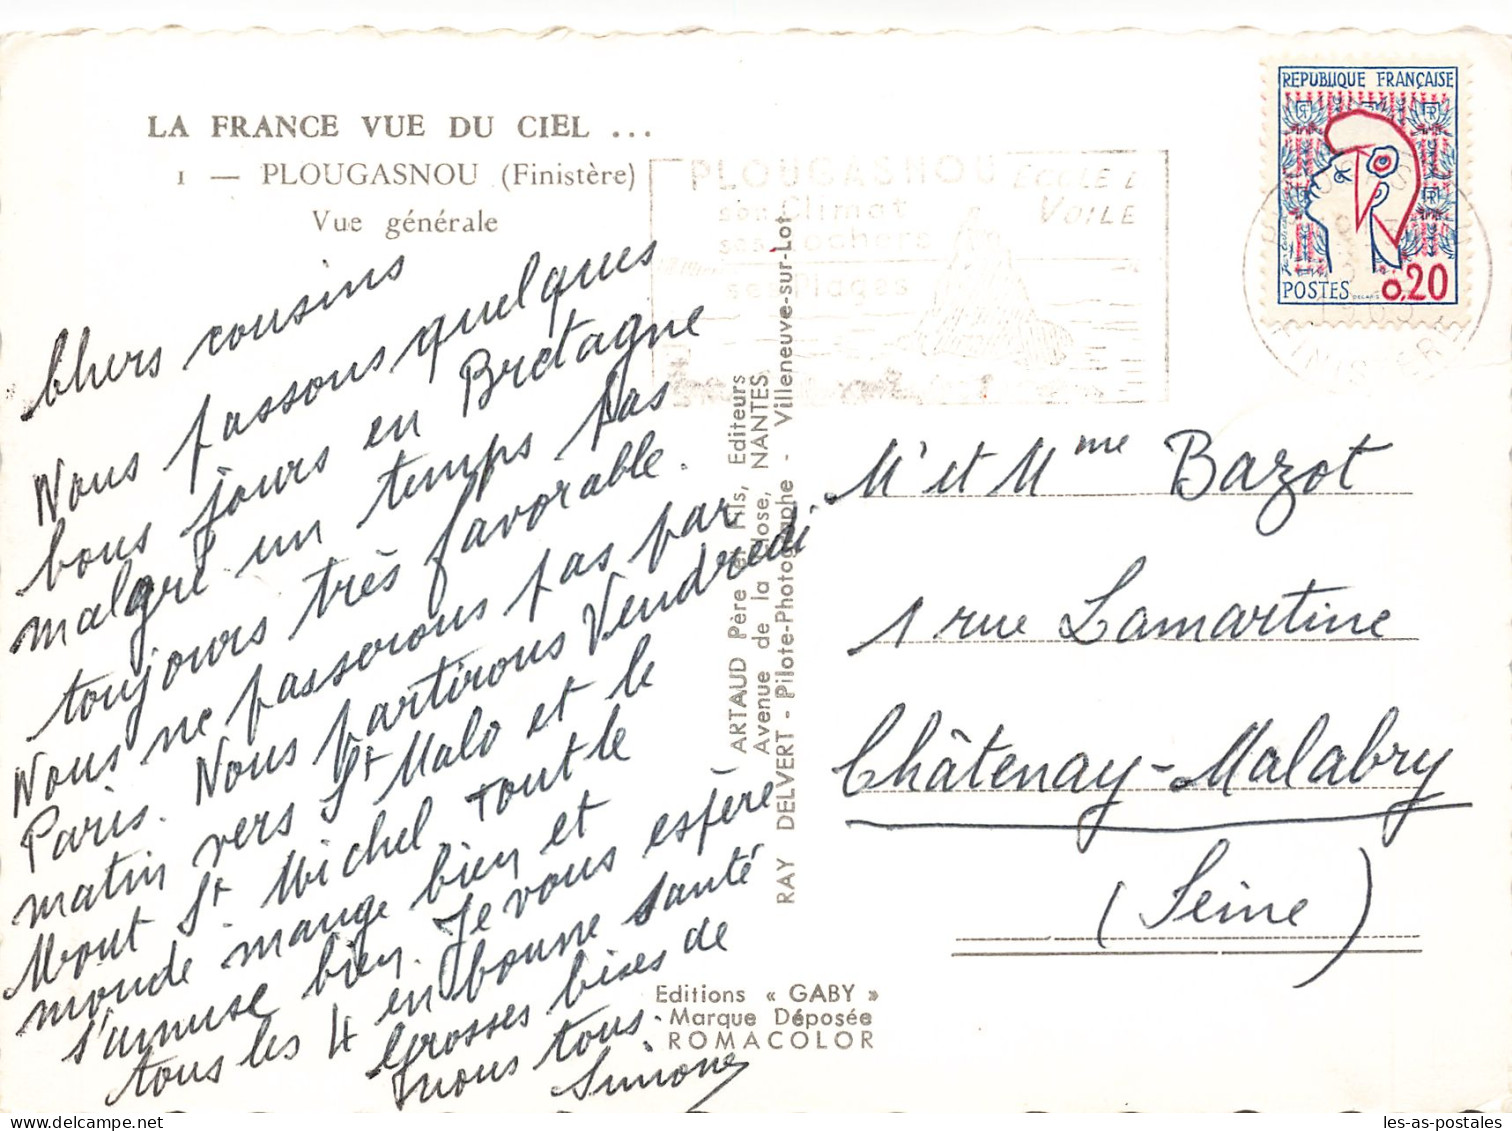 LA FRANCE VUE DU CIEL ...
1 — PLOUGASNOU (Finistère)
Vue générale
Chers cousins
Nous passons quelques
bons jours en Bretagne
malgré un temps pas
toujours très favorable.
Nous ne passerons pas par
Paris. Nous partirons Vendredi
matin vers St Malo et le
Mont St Michel Tout le
monde mange bien et
s'amuse bien. Je vous espère
tous les 4 en bonne santé
Grosses bises de
nous tous.
Simone
ARTAUD Père et Fils, Editeurs
Avenue de la Close, NANTES
RAY DELVERT - Pilote-Photographe - Villeneuve-sur-Lot
Editions « GABY »
Marque Déposée
ROMACOLOR
PLOUGASNOU
son Climat
ses Rochers
ses Plages
ECOLE D
VOILE
REPUBLIQUE FRANÇAISE
POSTES 0,20
FINISTERE
Mr et Mme Bazot
1 rue Lamartine
Châtenay-Malabry
(Seine)
les-as-postales